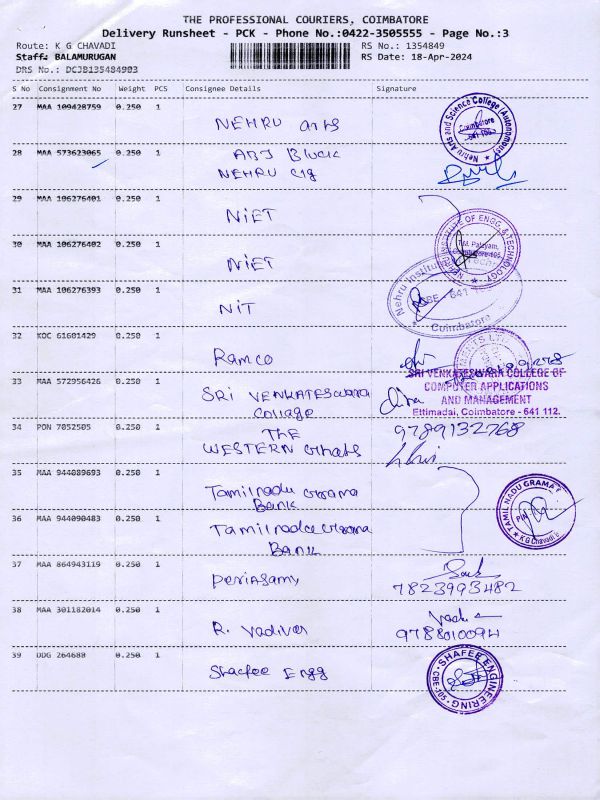 THE PROFESSIONAL COURIERS, COIMBATORE
Delivery Runsheet - PCK - Phone No.:0422-3505555 - Page No.:3
Route: K G CHAVADI RS No.: 1354849
Staff: BALAMURUGAN RS Date: 18-Apr-2024
DRS No.: DCJB135484903
S No Consignment No Weight PCS Consignee Details Signature
27 MAA 109428759 0.250 1
NEHRU arts
Nehru Arts and Science College (Autonomous)
Coimbatore
641 105
28 MAA 573623065 0.250 1
Block
NEHRU clg
29 MAA 106276401 0.250 1
NIET
30 MAA 106276402 0.250 1
NIET
T.M. Palayam,
Coimbatore-105
31 MAA 106276393 0.250 1
NIT
Nehru Institute
CBE - 641
Coimbatore
32 KOC 61601429 0.250 1
Ramco
33 MAA 572956426 0.250 1
SRI VENKATESWARA
College
SRI VENKATESWARA COLLEGE OF
COMPUTER APPLICATIONS
AND MANAGEMENT
Ettimadai, Coimbatore - 641 112.
34 PON 7052505 0.250 1
THE
WESTERN Ghats
9789132768
35 MAA 944089693 0.250 1
Tamilnadu Grama
Bank
36 MAA 944090483 0.250 1
Tamilnadu Grama
Bank
TAMIL NADU GRAMA
K G Chavadi
37 MAA 864943119 0.250 1
Periasamy
7823993482
38 MAA 301182014 0.250 1
R. Vadivel
9788010094
39 DDG 264680 0.250 1
Shafee Engg
SHAFEE ENGINEERING
CBE-105